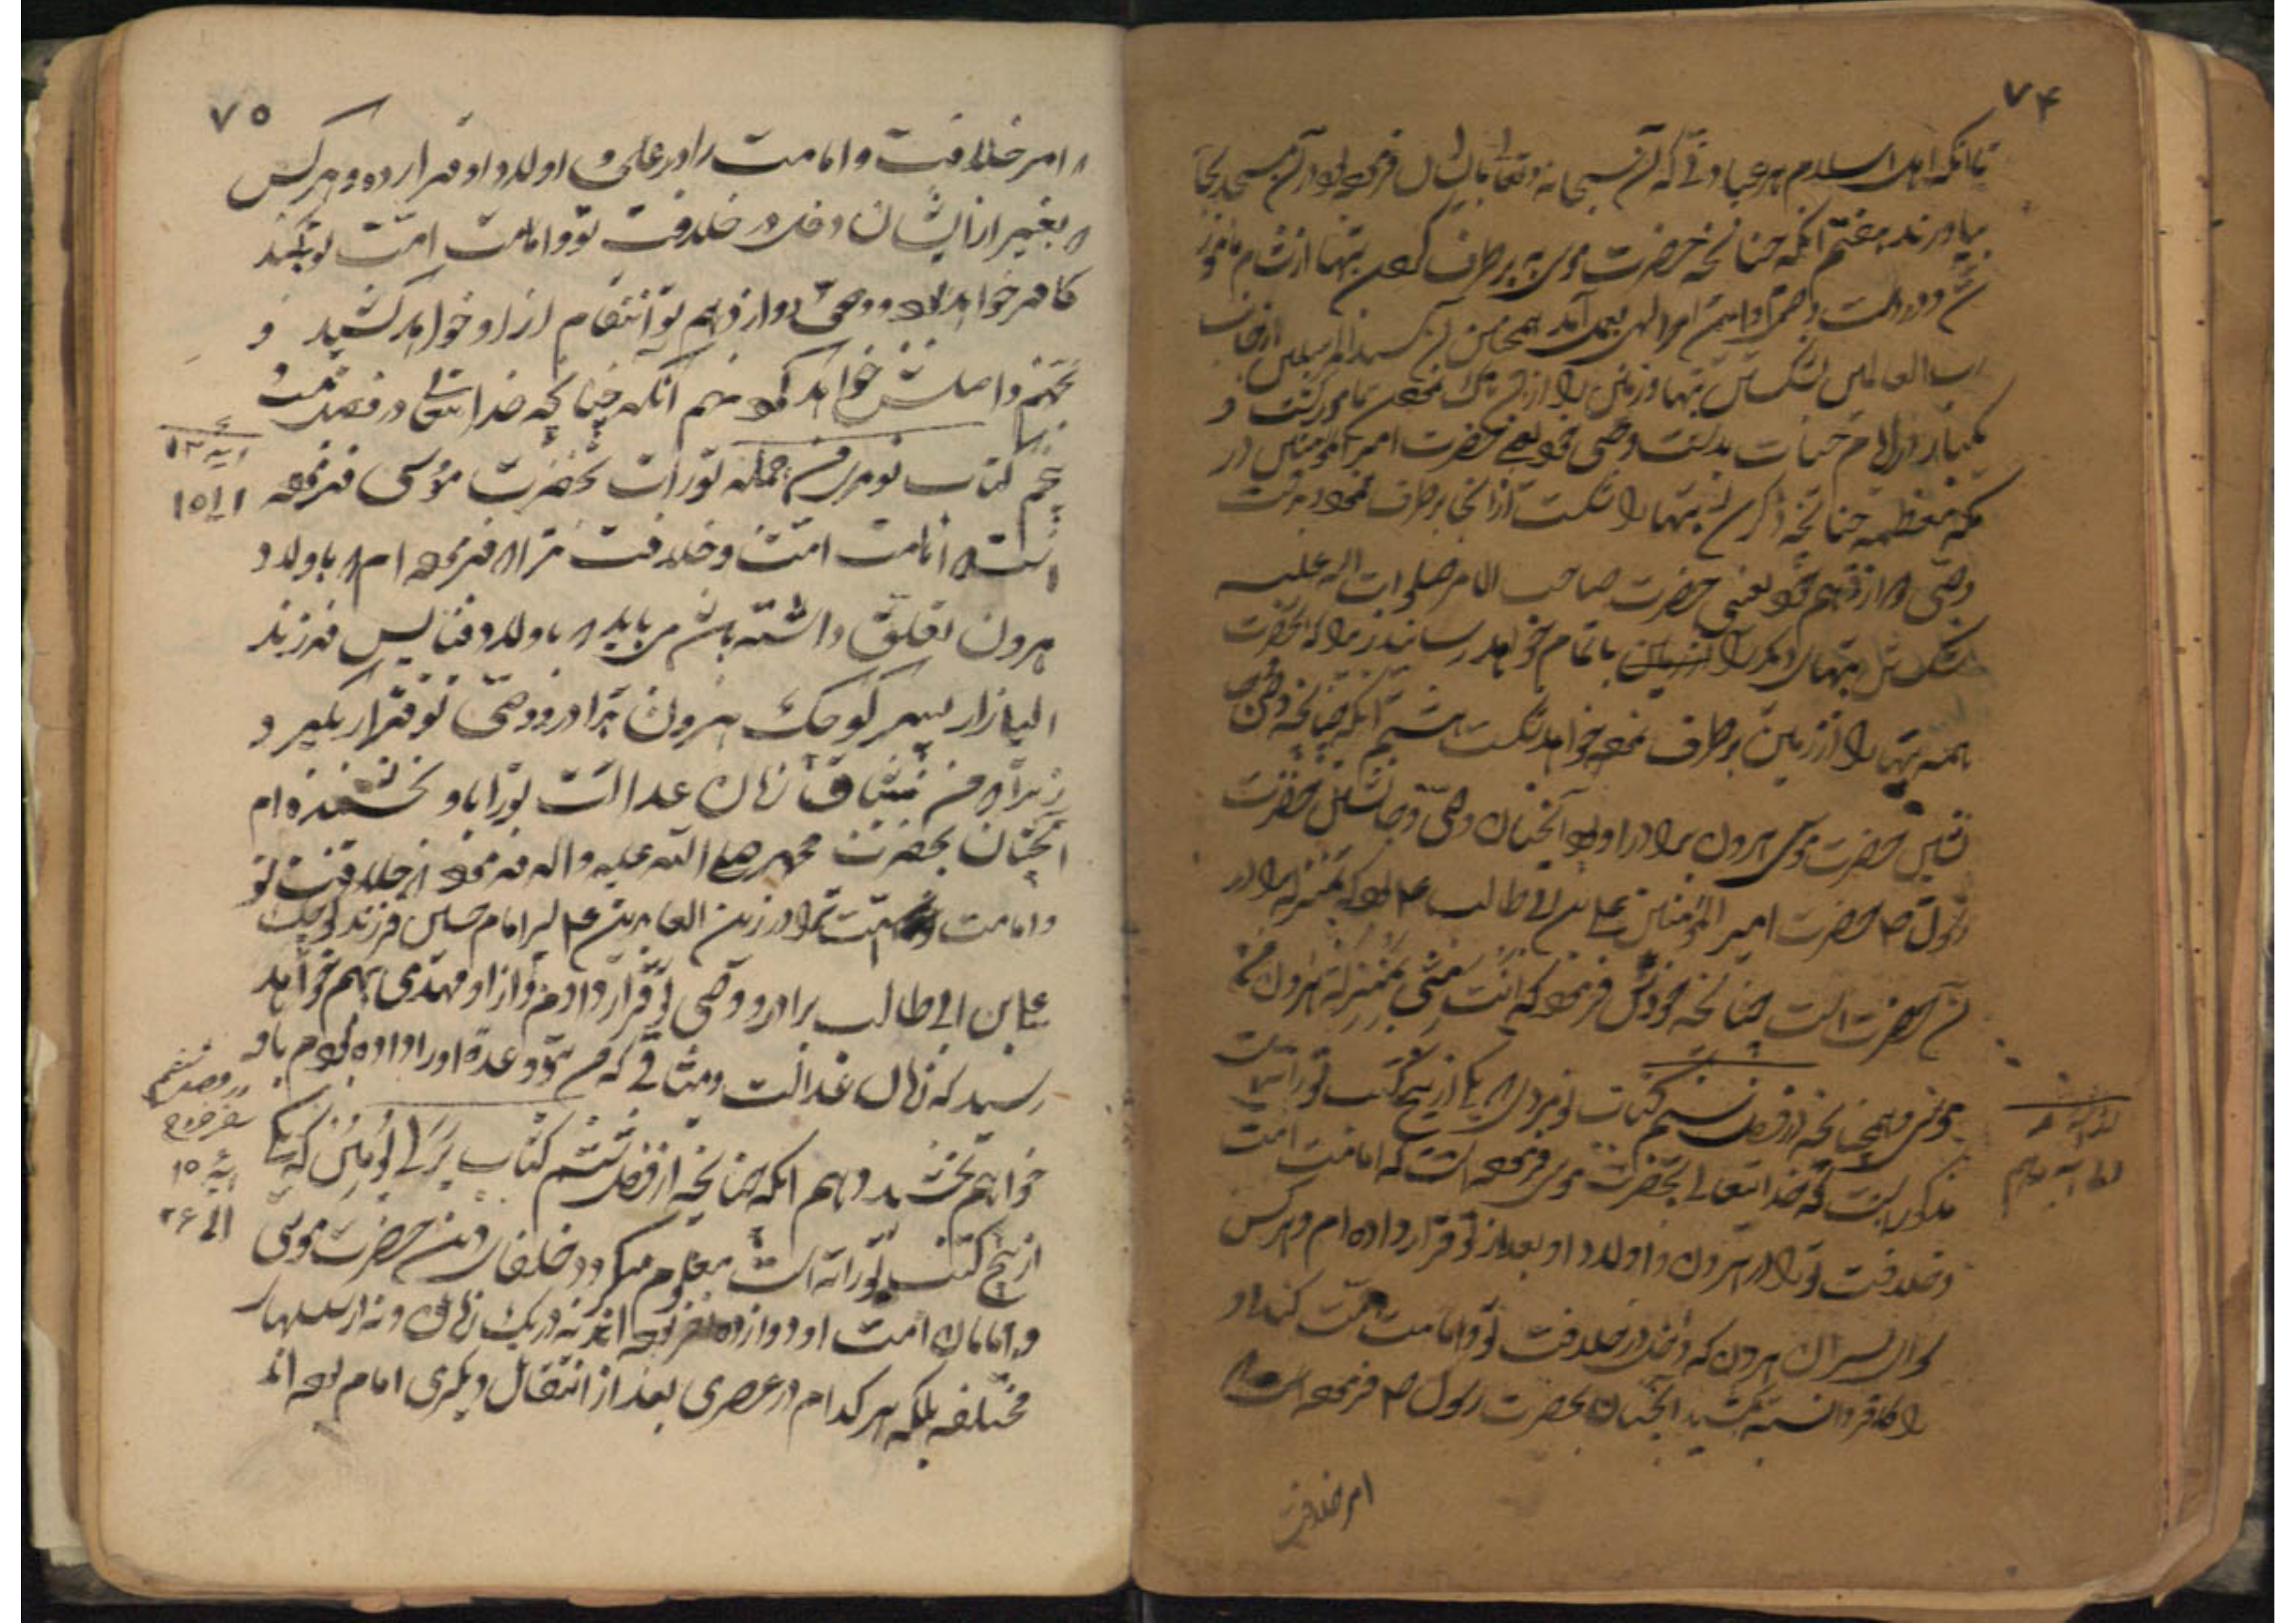 ۷۴
تا آنکه اهل اسلام هر عبادتی که آن سبحانه و تعالی بایشان فرموده بود در آن مسجد بجا
بیاورند هفتم آنکه چنانچه حضرت موسی به برطرف کردن بتها از شام مامور
امر الهی بعمل آمد همچنین آن سید المرسلین از جانب
رب العالمین بشکستن بتها و زمین را از آن پاک نمودن مامور گشت و
یکبار در ایام حیات بدست وصی خود یعنی حضرت امیر المؤمنین در
مکه معظمه چنانچه ذکر شد بتها را شکست از آنجا برطرف نمود و بدست
وصی دوازدهم خود یعنی حضرت صاحب الامر صلوات الله علیه
شکستن بتهای دیگر را باتمام خواهد رسانید زیرا که آنحضرت
همه بتها را از زمین برطرف نموده خواهد شکست هشتم آنکه چنانچه وصی
حضرت موسی هرون برادر او بود آنچنان وصی و جانشین حضرت
رسول ص حضرت امیر المؤمنین علی بن ابی طالب ع بود که بمنزله برادر
آن حضرت است چنانچه خودش فرمود که انت منی بمنزلة هرون من
موسی و همچنانچه در فصل کتاب نومردی که یکی از پنج کتب تورات است
مذکور است که خدا تعالی بحضرت موسی فرموده است که امامت امت
و خلافت تو را در هرون و اولاد او بعد از تو قرار داده ام و هر کس
از پسران هرون که دخل در خلافت تو و امامت امت کند او
را کافر دانسته بکشید آنچنان بحضرت رسول ص فرموده است که
امر خلافت
۷۵
که امر خلافت و امامت را در علی و اولاد او قرار داده و هر کس
که بغیر از ایشان دخل در خلافت تو و امامت امت تو بکند
کافر خواهد بود و وصی دوازدهم تو انتقام از او خواهد کشید و
بجهنم واصلش خواهد کرد نهم آنکه چنانچه خدا تعالی در فصل بیست و
پنجم کتاب نومردی از جمله تورات بحضرت موسی فرموده
آیه ۱۲
الی ۱۵
است که امامت امت و خلافت ترا که فرموده ام که باولاد
هرون تعلق داشته باشد می باید که باولاد فنایس فرزند
الیازار پسر کوچک هرون برادر و وصی تو قرار بگیرد
زیرا که من میثاق کاهن عدالت تو را باو بخشیده ام
آنچنان بحضرت محمد صلی الله علیه و اله فرمود که خلافت تو
و امامت امت ترا در زین العابدین ع پسر امام حسین فرزند کوچک
علی بن ابی طالب برادر و وصی تو قرار دادم و از او مهدی بهم خواهد
رسید که کاهن عدالت و میثاقی که من بتو وعده او را داده بودم باو
خواهم بخشید دهم آنکه چنانچه از فصل ششم کتاب که یکی
آیه ۱۵
الی ۲۶
از پنج کتب توراته است معلوم میگردد خلفای دین حضرت موسی
و امامان امت او دوازده نفر بوده اند نه در یک زمان و نه از نسلهای
مختلفه بلکه هر کدام در عصری بعد از انتقال دیگری امام بوده اند